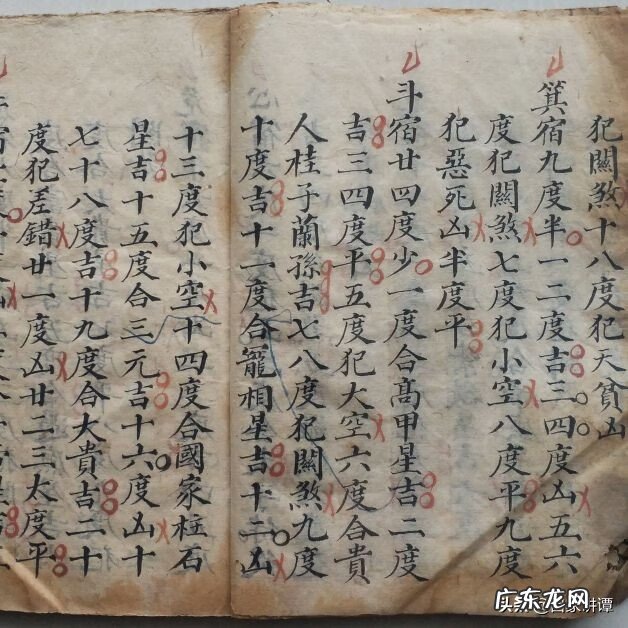 犯關煞十八度犯天貧凶
箕宿九度半一二度吉三四度凶五六
度犯關煞七度犯小空八度平九度
犯惡死凶半度平
斗宿廿四度少一度合高甲星吉二度
吉三四度平五度犯大空六度合貴
人桂子蘭孫吉七八度犯關煞九度
十度吉十一度合寵相星吉十二凶
十三度犯小空十四度合國家柱石
星吉十五度合三元吉十六度凶十
七十八度吉十九度合大貴吉二十
度犯差錯廿一度凶廿二三太度平
广东龙网